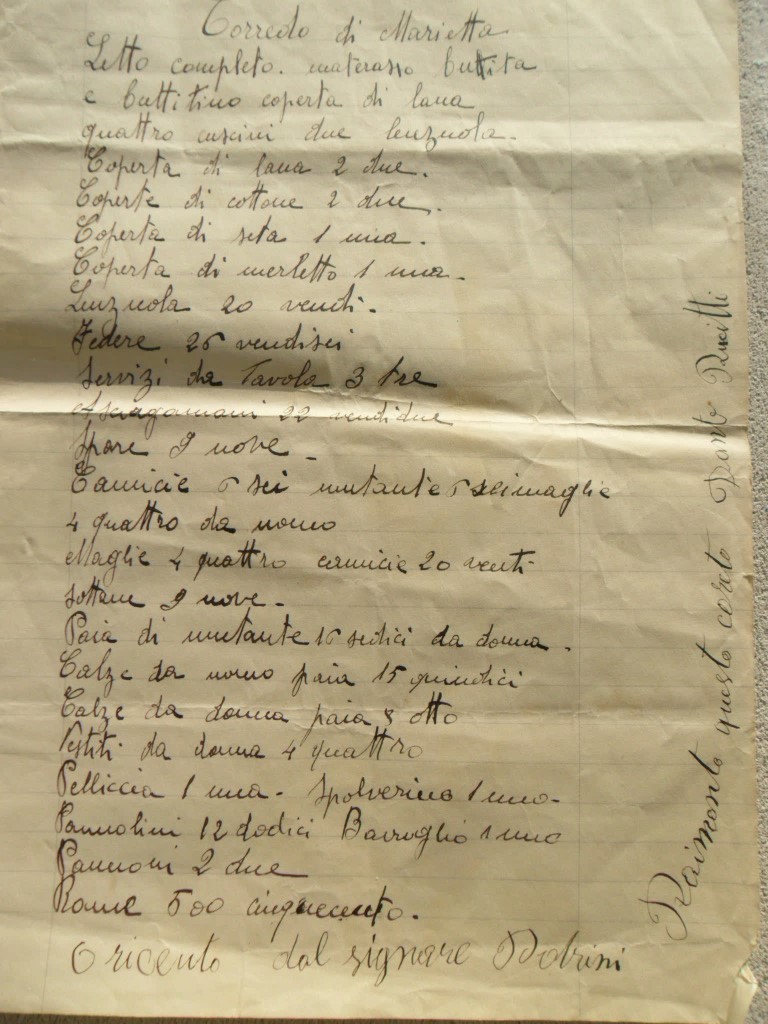 Corredo di Marietta
Letto completo. materasso buttita
e buttitino coperta di lana
quattro cuscini due lenzuola.
Coperta di lana 2 due.
Coperte di cottone 2 due.
Coperta di seta 1 una.
Coperta di merletto 1 una.
Lenzuola 20 vendi.
Federe 26 vendisei
Servizi da Tavola 3 tre
Asciagamani 22 vendidue
Spare 9 nove.
Camicie 6 sei mutante 6 sei maglie
4 quattro da uomo
Maglie 4 quattro camicie 20 venti
sottane 9 nove.
Paia di mutante 16 sedici da donna.
Calze da uomo paia 15 quindici
Calze da donna paia 8 otto
Vestiti da donna 4 quattro
Pelliccia 1 una. Spolverino 1 uno.
Pannolini 12 dodici Bavuglio 1 uno
Pannoni 2 due
Rame 500 cinquecento.
O ricento dal signare
Raimonto questo coreto